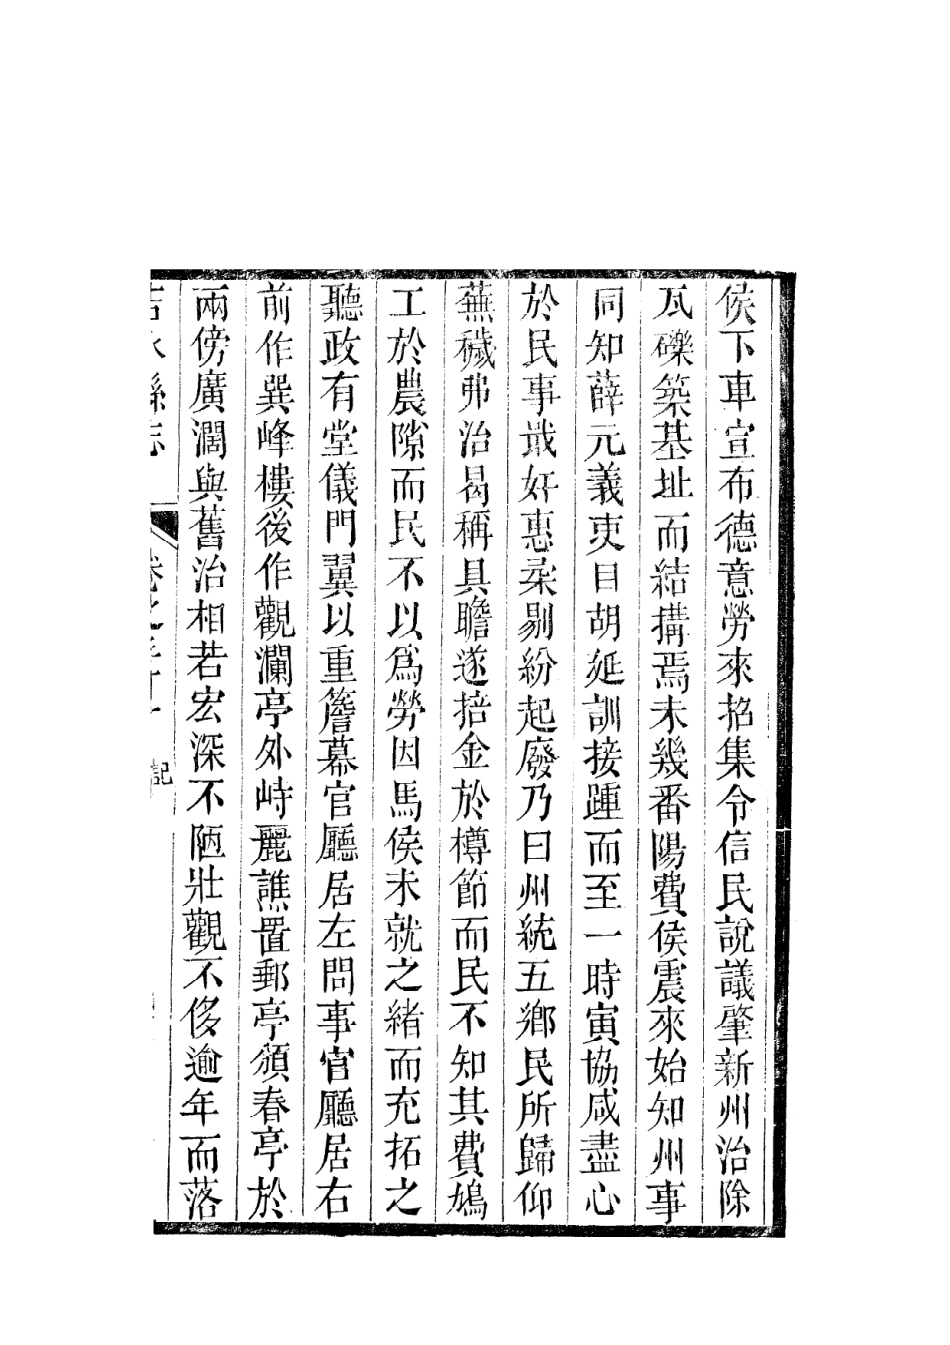 侯下車宣布德意勞來招集令信民說議肇新州治除
瓦礫築基址而結搆焉未幾番陽費侯震來始知州事
同知薛元義吏目胡延訓接踵而至一時寅協咸盡心
於民事戢奸惠柔剔紛起廢乃曰州統五鄉民所歸仰
蕪穢弗治曷稱具瞻遂掊金於樽節而民不知其費鳩
工於農隙而民不以爲勞因馬侯未就之緒而充拓之
聽政有堂儀門翼以重簷幕官廳居左問事官廳居右
前作巽峰樓後作觀瀾亭外峙麗譙置郵亭頒春亭於
兩傍廣濶與舊治相若宏深不陋壯觀不侈逾年而落
吉水縣志 卷之 記